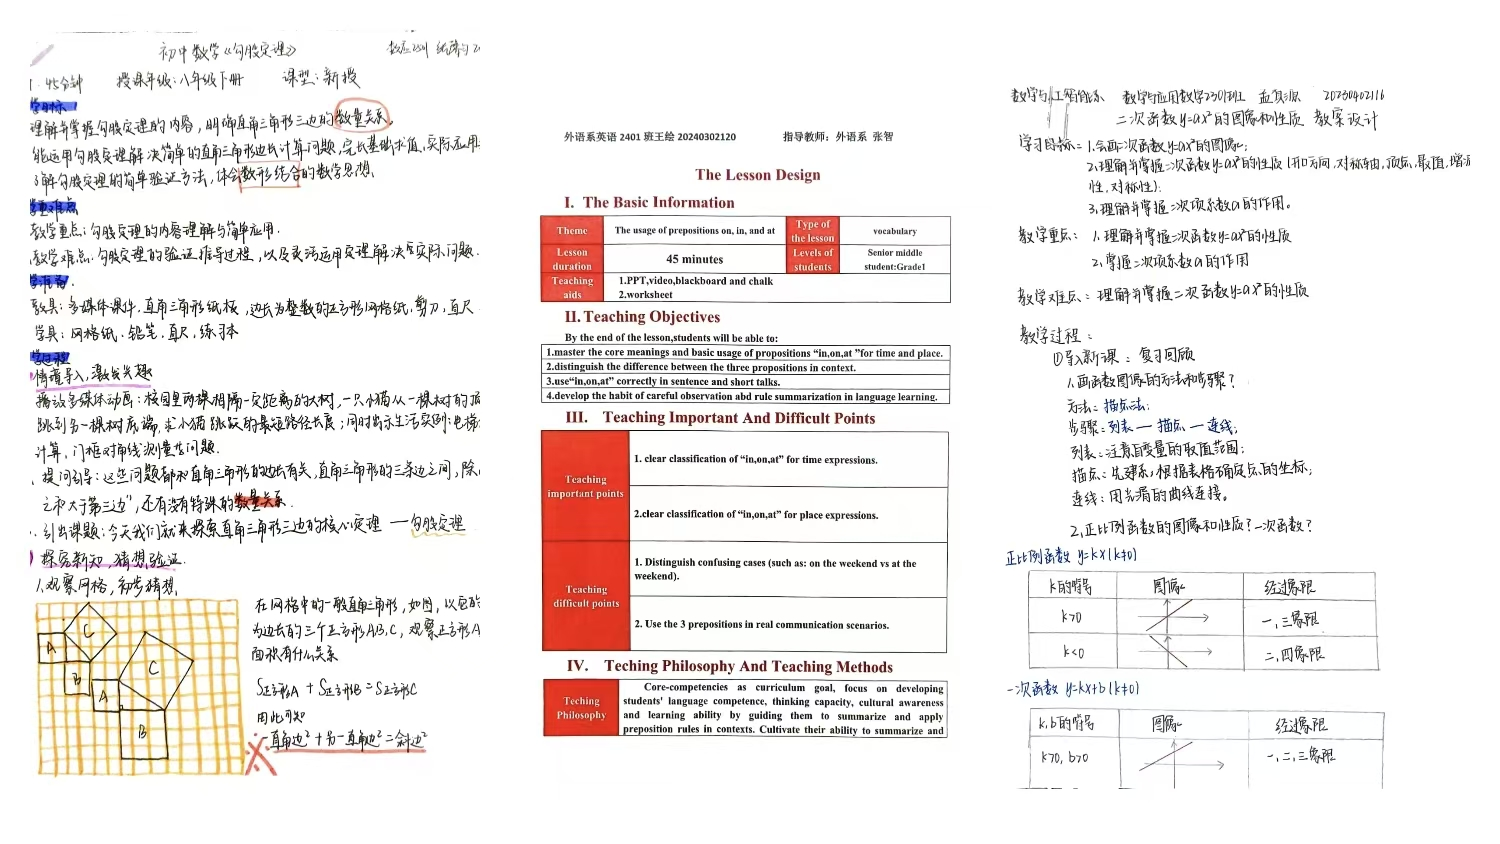 初中数学《勾股定理》
45分钟 授课年级:八年级下册 课型:新授
理解并掌握勾股定理的内容,明确直角三角形三边的数量关系。
能运用勾股定理解决简单的直角三角形边长计算问题,完长基础求值,实际应用
了解勾股定理的简单验证方法,体会数形结合的数学思想.
教学重点:勾股定理的内容理解与简单应用.
教学难点:勾股定理的验证推导过程,以及灵活运用定理解决实际问题.
教具:多媒体课件.直角三角形纸板,边长为整数的正方形网格纸,剪刀,直尺
学具:网格纸.铅笔.直尺,练习本
情境导入,激发兴趣
播放多媒体动画:校园里两棵相隔一定距离的大树,一只小猫从一棵树的顶
跳到另一棵树底端,求小猫跳跃的最短路径长度;同时出示生活实例:电梯
计算,门框对角线测量等问题.
提问引导:这些问题都和直角三角形的边长有关,直角三角形的三条边之间,除
之和大于第三边",还有没有特殊的数量关系.
引出课题:今天我们就来探索直角三角形三边的核心定理 — 勾股定理
探究新知,猜想验证.
1.观察网格,初步猜想.
C
A
B
C
A
B
在网格中的一般直角三角形,如图,以它的
为边长的三个正方形A,B,C,观察正方形A
面积有什么关系
S正方形A + S正方形B = S正方形C
由此可知
一直角边² + 另一直角边² = 斜边²
外语系英语 2401 班王绘 20240302120 指导教师: 外语系 张智
The Lesson Design
I. The Basic Information
Theme The usage of prepositions on, in, and at Type of the lesson vocabulary
Lesson duration 45 minutes Levels of students Senior middle student:Grade1
Teaching aids 1.PPT,video,blackboard and chalk
2.worksheet
II. Teaching Objectives
By the end of the lesson,students will be able to:
1.master the core meanings and basic usage of propositions “in,on,at ”for time and place.
2.distinguish the difference between the three propositions in context.
3.use“in,on,at” correctly in sentence and short talks.
4.develop the habit of careful observation abd rule summarization in language learning.
III. Teaching Important And Difficult Points
Teaching important points
1. clear classification of “in,on,at” for time expressions.
2.clear classification of “in,on,at” for place expressions.
Teaching difficult points
1. Distinguish confusing cases (such as: on the weekend vs at the
weekend).
2. Use the 3 prepositions in real communication scenarios.
IV. Teching Philosophy And Teaching Methods
Teching Philosophy
Core-competencies as curriculum goal, focus on developing
students' language competence, thinking capacity, cultural awareness
and learning ability by guiding them to summarize and apply
preposition rules in contexts. Cultivate their ability to summarize and
数学与人工智能系 数学与应用数学2301班 20230402116
二次函数y=ax²的图像和性质 教案设计
学习目标: 1.会画二次函数y=ax²的图像;
2.理解并掌握二次函数y=ax²的性质(开口方向,对称轴,顶点,最值,增减
性,对称性);
3.理解并掌握二次项系数a的作用。
教学重点: 1.理解并掌握二次函数y=ax²的性质
2.掌握二次项系数a的作用
教学难点:理解并掌握二次函数y=ax²的性质
教学过程:
①导入新课:复习回顾
1.画函数图像的方法和步骤?
方法:描点法;
步骤:列表 — 描点 — 连线;
列表:注意自变量的取值范围;
描点:先建系,根据表格确定点的坐标;
连线:用光滑的曲线连接。
2.正比例函数的图像和性质?一次函数?
正比例函数 y=kx(k≠0)
k的符号 图像 经过象限
k>0 一,三象限
k<0 二,四象限
一次函数 y=kx+b(k≠0)
k,b的符号 图像 经过象限
k>0, b>0 一,二,三象限